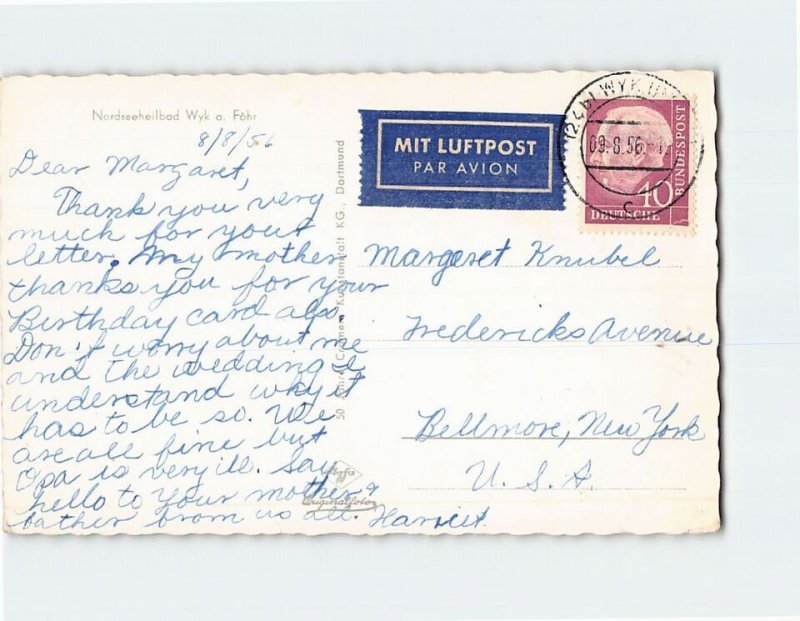 Nordseeheilbad Wyk a. Föhr
8/8/56
Dear Margaret,
Thank you very
much for yout
letter. My mother
thanks you for your
Birthday card also.
Don't worry about me
and the wedding I
understand why it
has to be so. We
are all fine but
Opa is very ill. Say
hello to your mother &
father from us all. Harriet
50 Jahre Cramers Kunstanstalt KG., Dortmund
Agfa
Originalfoto
MIT LUFTPOST
PAR AVION
(24b) WYK
09-8.56
c
10
DEUTSCHE
BUNDESPOST
Margaret Knubel
Fredericks Avenue
Bellmore, New York
U. S. A.